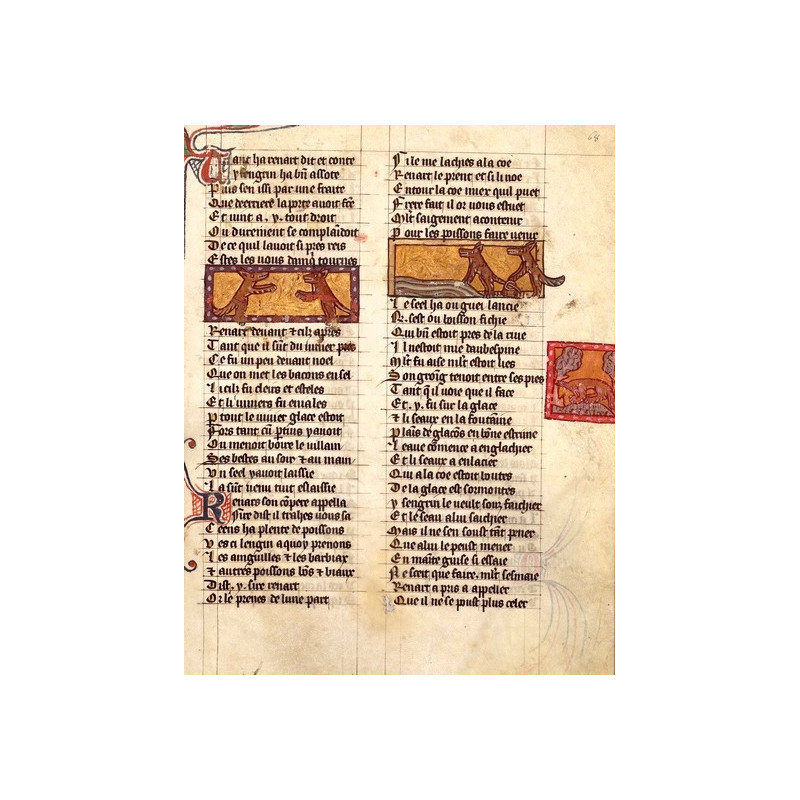 Tant ha renart dit et conte
Q' ysengrin ha bñ assote
Puis sen issi par une fraite
Que deerriere la porte avoit fẽ
Et vint a . y . tout droit
Ou durement se complaĩdoit
De ce quil lauoit si pres reis
Estes les uous damq̃ tournes
Renart deuant & cilz apres
Tant que il sũt du uiuier pres
Ce fu un peu deuant noel
Que on met les bacons en sel
Li cilz fu clers et esteles
Et li uiuiers fu engales
P tout le uiuier glace estoit
Fors tant cũ ptuis y auoit
Ou menoit boire le uillain
Ses bestes au soir & au main
Vn seel y auoit laissie
La sũt uenu tuit eslaissie
Renars son cõpere appella
Sire dist il trahes uous sa
Ceens ha plente de poissons
Ves ci lengin a quoy prenons
Les anguilles & les barbiax
& autres poissons bõs & biaux
Dist . y . sire renart
Or le prenes de lune part
Si le me lachies a la coe
Renart le prent et si li noe
Entour la coe miex quil puet
Frere fait il or uous estuet
Mlt saigement a contenir
Pour les poissons faire uenir
Le seel ha ou guei lancie
R. sest ou boisson fichie
Qui bñ estoit pres de la riue
Il nestoit mie daubespine
Mlt fu aise mlt estoit lies
Son groing tenoit entre ses pies
Tant q̃ il voie que il face
Et . y . fu sur la glace
& li seaux en la fontaine
Plaĩs de glacõs en bõne estrine
Leaue cõmence a englachier
Et li seaux a enlacier
Qui a la coe estoit noutes
De la glace est sormontes
ysengrin le veult sonz fauchier
Et le seau a lui sachier
Mais il ne sen soust tãt pener
Que a lui le peust mener
En mainte guise si essaie
Ne sceit que faire. mlt sesmaie
Renart a pris a appeller
Que il ne se puist plus celer